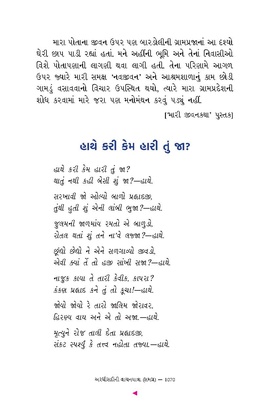 મારા પોતાના જીવન ઉપર પણ બારડોલીની ગ્રામપ્રજાનાં આ દશ્યો
ઘેરી છાપ પાડી રહ્યાં હતાં. મને અહીંની ભૂમિ અને તેનાં નિવાસીઓ
વિશે પોતાપણાની લાગણી થવા લાગી હતી. તેના પરિણામે આગળ
ઉપર જ્યારે મારી સમક્ષ ‘નવજીવન’ અને આશ્રમશાળાનું કામ છોડી
ગામડું વસાવવાનો વિચાર ઉપસ્થિત થયો, ત્યારે મારા ગ્રામપ્રદેશની
શોધ કરવામાં મારે જરા પણ મનોમંથન કરવું પડ્યું નહીં.
[‘મારી જીવનકથા’ પુસ્તક]
હાથે કરી કેમ હારી તું જા?
હાથે કરી કેમ હારી તું જા?
થાતું નથી કહી બેસી શું જા?—હાથે.
સરખાવી જો ઓલ્યો બાળો પ્રહ્લાદજી,
તુંથી હતી શું એની લાંબી ભુજા?—હાથે.
જુલમની જાળમાંય રમતો એ બાળુડો,
રોતલ થતાં શું તને ના’વે લજ્જા?—હાથે.
છૂંદ્યો છેદ્યો ને એને સળગાવ્યો જીવડો,
એવી ક્યાં તેં તો હજી સાંખી સજા?—હાથે.
નાજુક કાયા તે તારી કેવીક, કાયરા?
કંકણ પ્રહ્લાદ કને તું તો કૂચા!—હાથે.
જોયો જોયો રે તારો જાલિમ જોરાવર,
હિરણ્ય વાઘ અને એ તો અજા.—હાથે.
મૃત્યુને રોજ તાળી દેતા પ્રહ્લાદજી,
સંકટ સ્પર્શ્યું કે તત્ત્વ નહોતા તજ્યા.—હાથે.